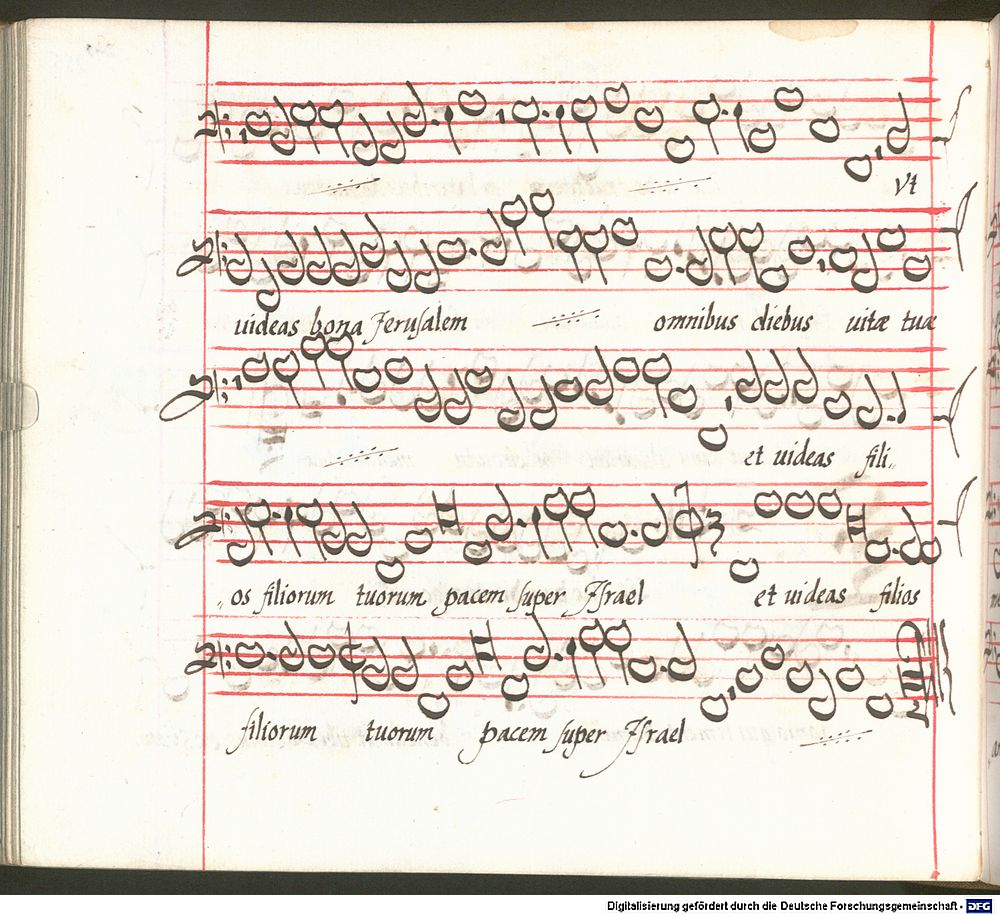 Vt
uideas bona Jeruſalem omnibus diebus uitæ tuæ
et uideas fili„
„os filiorum tuorum pacem ſuper Iſrael et uideas filios
filiorum tuorum pacem ſuper Iſrael
Digitalisierung gefördert durch die Deutsche Forschungsgemeinschaft - DFG